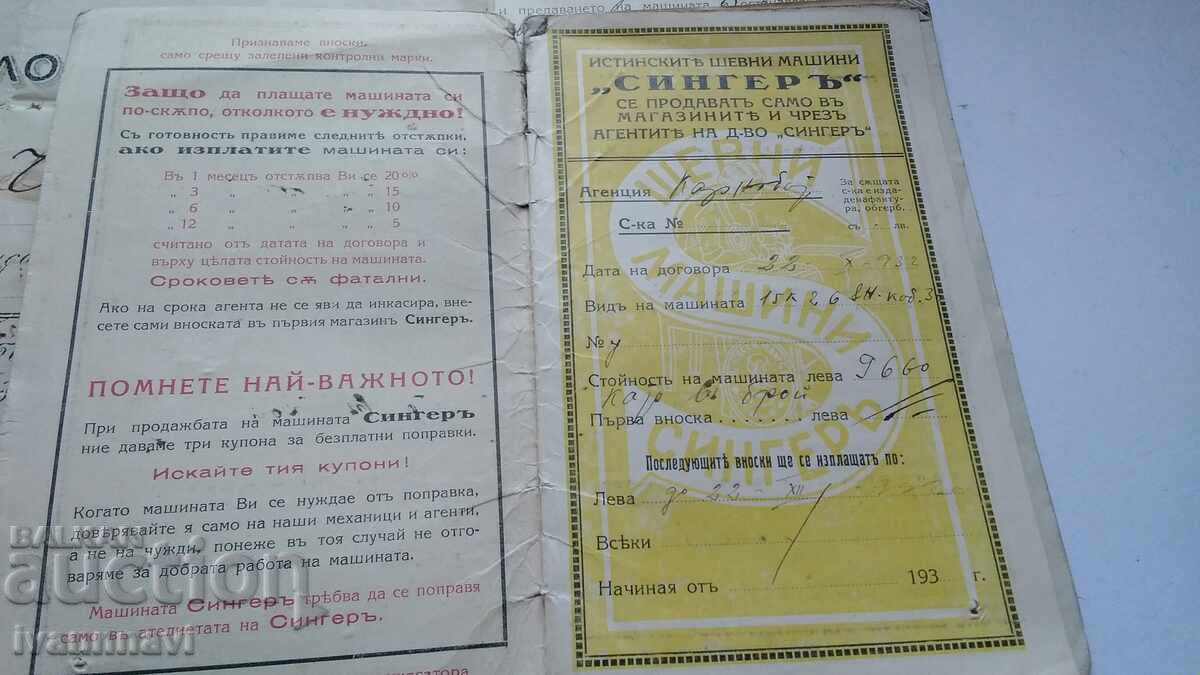 и предаването на машината
ЛО
Признаваме вноски,
само срещу залепени контролни марки.
Защо да плащате машината си
по-скѫпо, отколкото е нуждно!
Съ готовность правиме следните отстѫпки,
ако изплатите машината си:
Въ 1 месецъ отстѫпва Ви се 20%
„ 3 „ „ „ „ 15
„ 6 „ „ „ „ 10
„ 12 „ „ „ „ 5
считано отъ датата на договора и
върху цѣлата стойность на машината.
Сроковетѣ сѫ фатални.
Ако на срока агента не се яви да инкасира, вне-
сете сами вноската въ първия магазинъ Сингеръ.
ПОМНЕТЕ НАЙ-ВАЖНОТО!
При продажбата на машината Сингеръ
ние даваме три купона за безплатни поправки.
Искайте тия купони!
Когато машината Ви се нуждае отъ поправка,
довѣрявайте я само на наши механици и агенти,
а не на чужди, понеже въ тоя случай не отго-
варяме за добрата работа на машината.
Машината Сингеръ трѣбва да се поправя
само въ ателиетата на Сингеръ.
ИСТИНСКИТѢ ШЕВНИ МАШИНИ
„СИНГЕРЪ“
СЕ ПРОДАВАТЪ САМО ВЪ
МАГАЗИНИТѢ И ЧРЕЗЪ
АГЕНТИТѢ НА Д-ВО „СИНГЕРЪ“
ШЕВНИ
МАШИНИ
СИНГЕРЪ
Агенция Карнобат
За сѫщата
с-ка е изда-
дена факту-
ра, обгерб.
съ лв.
С-ка №
Дата на договора 22 X 932
Видъ на машината 15к 26
№
Стойность на машината лева 9660
като в брой
Първа вноска . . . . . . . лева
Последующитѣ вноски ще се изплащатъ по:
Лева до 22 - XII
Всѣки
Начиная отъ 193 г.
BALKAN
auction
ivanmavi